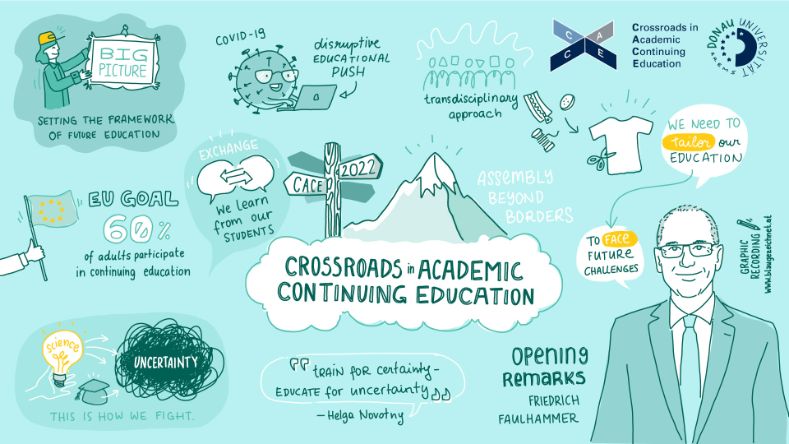 BIG
PICTURE
SETTING THE FRAMEWORK
OF FUTURE EDUCATION
COVID-19
disruptive
EDUCATIONAL
PUSH
transdisciplinary
approach
CACE
Crossroads in
Academic
Continuing
Education
DONAU UNIVERSITÄT
KREMS
WE NEED TO
tailor our
EDUCATION
EXCHANGE
We learn
from our
STUDENTS
CACE
2022
ASSEMBLY
BEYOND
BORDERS
EU GOAL
60%
of adults participate
in continuing education
CROSSROADS in ACADEMIC
CONTINUING EDUCATION
TO FACE
FUTURE
CHALLENGES
GRAPHIC
RECORDING
www.blaugezeichnet.at
science
UNCERTAINTY
THIS IS HOW WE FIGHT.
"TRAIN FOR certainty-
EDUCATE for uncertainty"
- Helga Novotny
Opening
Remarks
FRIEDRICH
FAULHAMMER